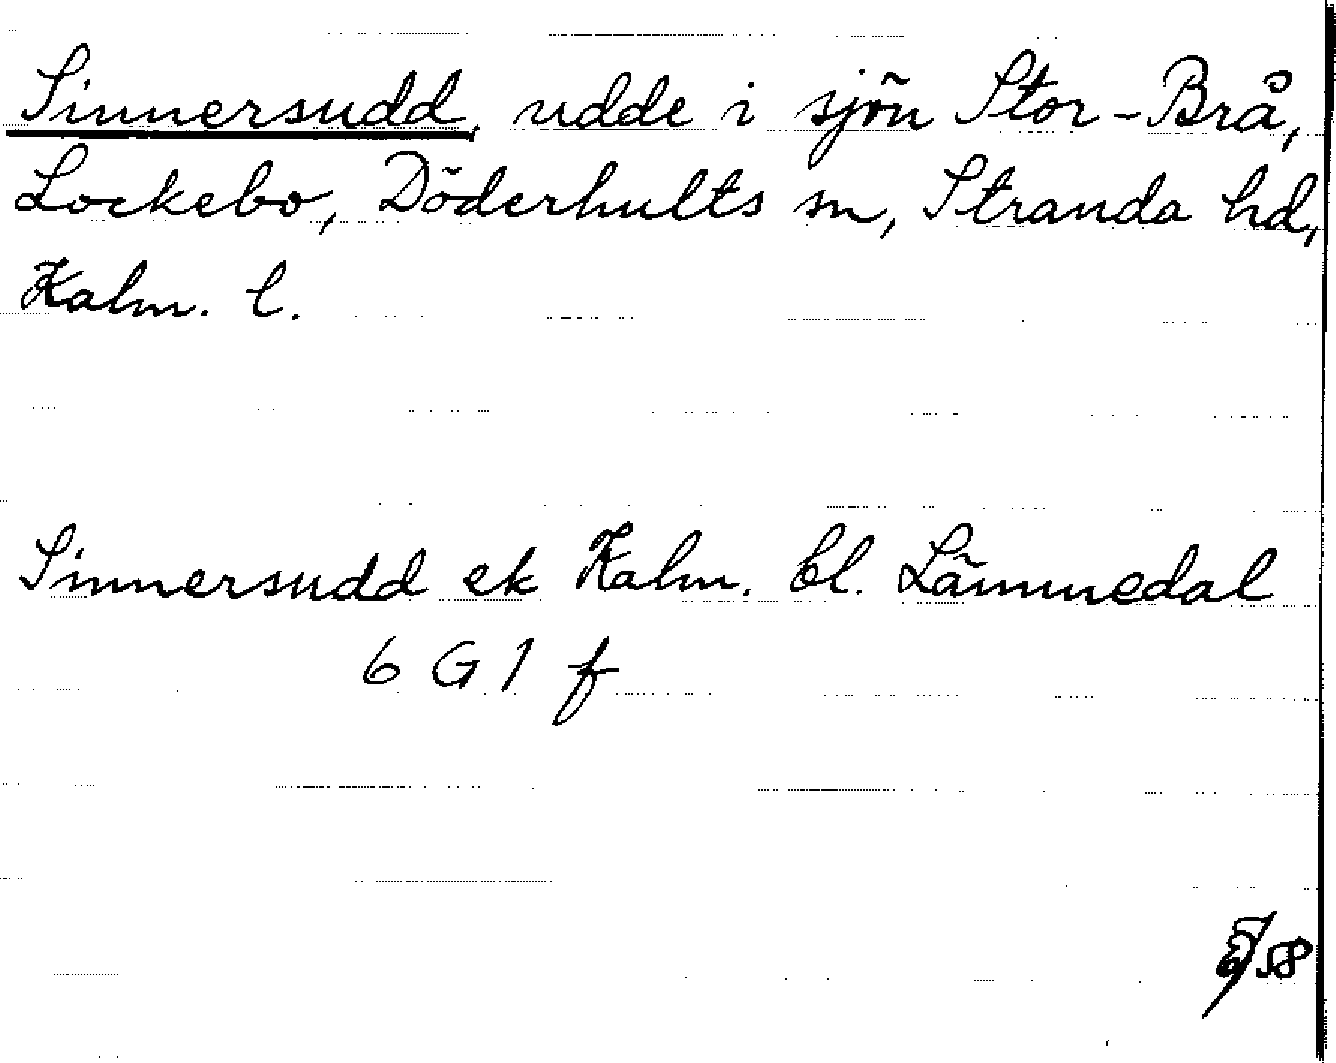 Sinnersudd, udde i sjön Stor-Brå,
Lockebo, Döderhults sn, Stranda hd,
Kalm. l.
Sinnersudd ek Kalm. bl. Lämmedal
6 G 1 f
58